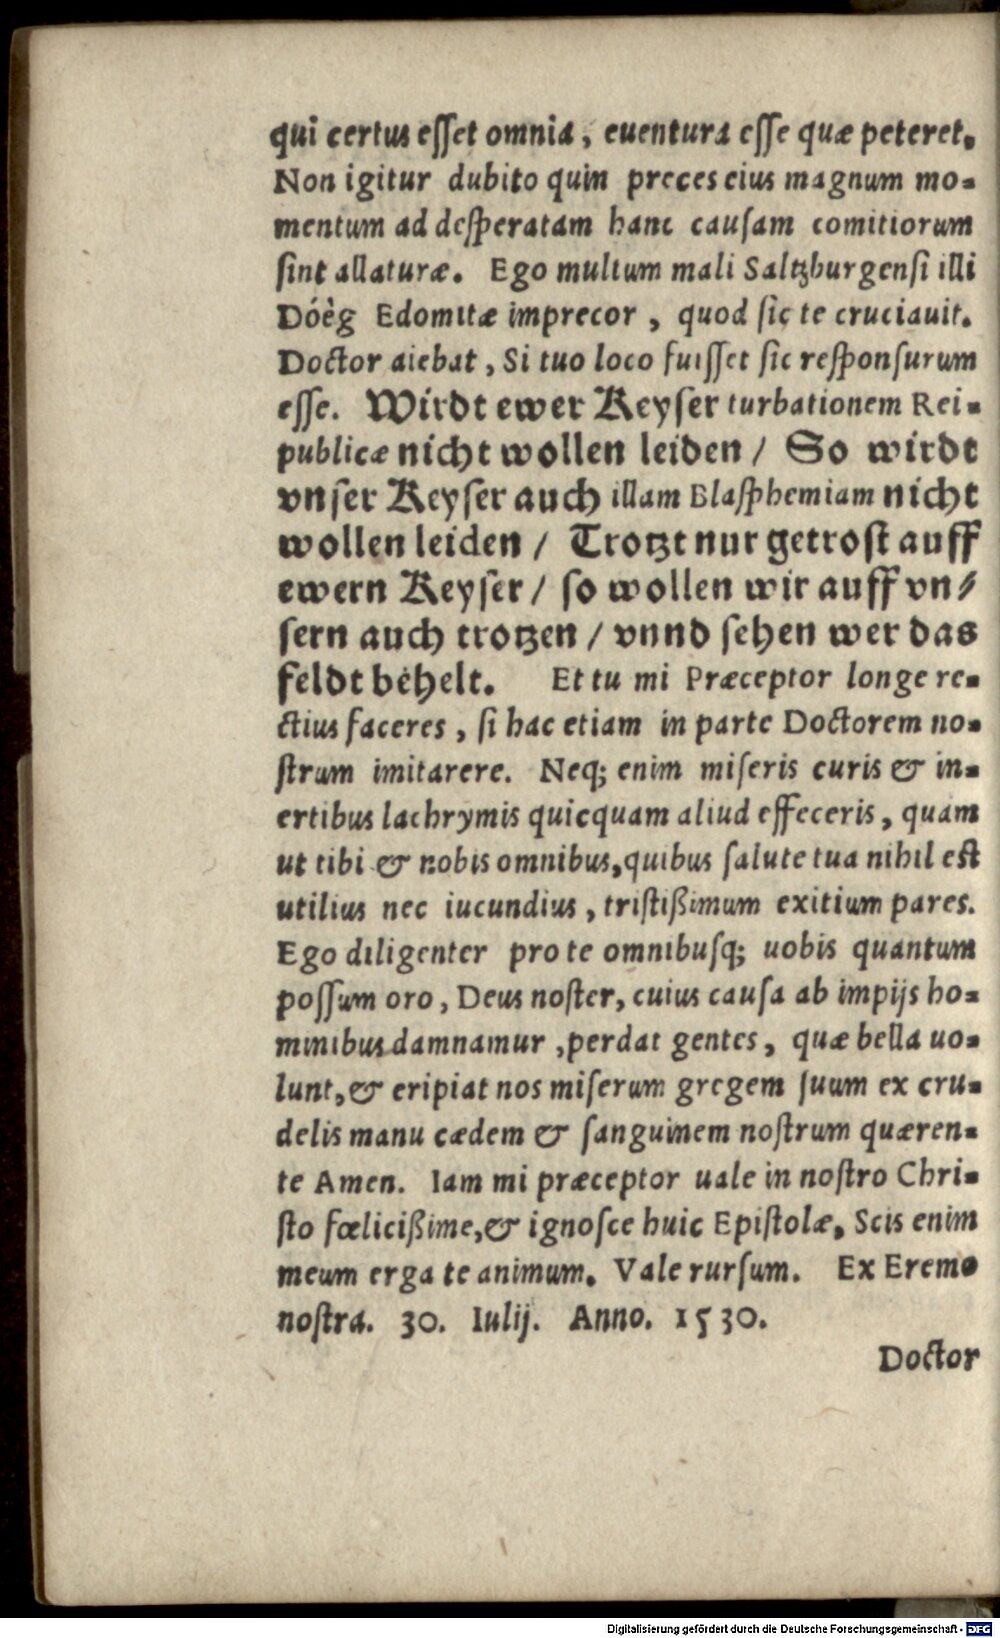 qui certus esſet omnia, euentura esſe quæ peteret.
Non igitur dubito quin preces eius magnum mo-
mentum ad deſperatam hanc cauſam comitiorum
ſint allaturæ. Ego multum mali Saltzburgenſi illi
Dóèg Edomitæ imprecor, quod ſic te cruciauit.
Doctor aiebat, Si tuo loco fuiſſet ſic reſponſurum
eſſe. Wirdt ewer Keyſer turbationem Rei-
publicæ nicht wollen leiden / So wirdt
vnſer Keyſer auch illam Blaſphemiam nicht
wollen leiden / Trotzt nur getroſt auff
ewern Keyſer / ſo wollen wir auff vn⸗
ſern auch trotzen / vnnd ſehen wer das
feldt behelt. Et tu mi Præceptor longe re-
ctius faceres, ſi hac etiam in parte Doctorem no-
ſtrum imitarere. Neq; enim miſeris curis & in-
ertibus lachrymis quicquam aliud effeceris, quam
ut tibi & nobis omnibus, quibus ſalute tua nihil eſt
utilius nec iucundius, triſtißimum exitium pares.
Ego diligenter pro te omnibuſq; uobis quantum
poſſum oro, Deus noſter, cuius cauſa ab impijs ho-
minibus damnamur, perdat gentes, quæ bella uo-
lunt, & eripiat nos miſerum gregem ſuum ex cru-
delis manu cædem & ſanguinem noſtrum quæren-
te Amen. Iam mi præceptor uale in noſtro Chri-
ſto fœlicißime, & ignoſce huic Epiſtolæ, Scis enim
meum erga te animum. Vale rurſum. Ex Eremo
noſtra. 30. Iulij. Anno. 1530.
Doctor
Digitalisierung gefördert durch die Deutsche Forschungsgemeinschaft - DFG